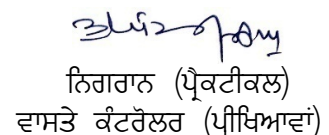 ਨਿਗਰਾਨ (ਪ੍ਰੈਕਟੀਕਲ)
ਵਾਸਤੇ ਕੰਟਰੋਲਰ (ਪੀਖਿਆਵਾਂ)